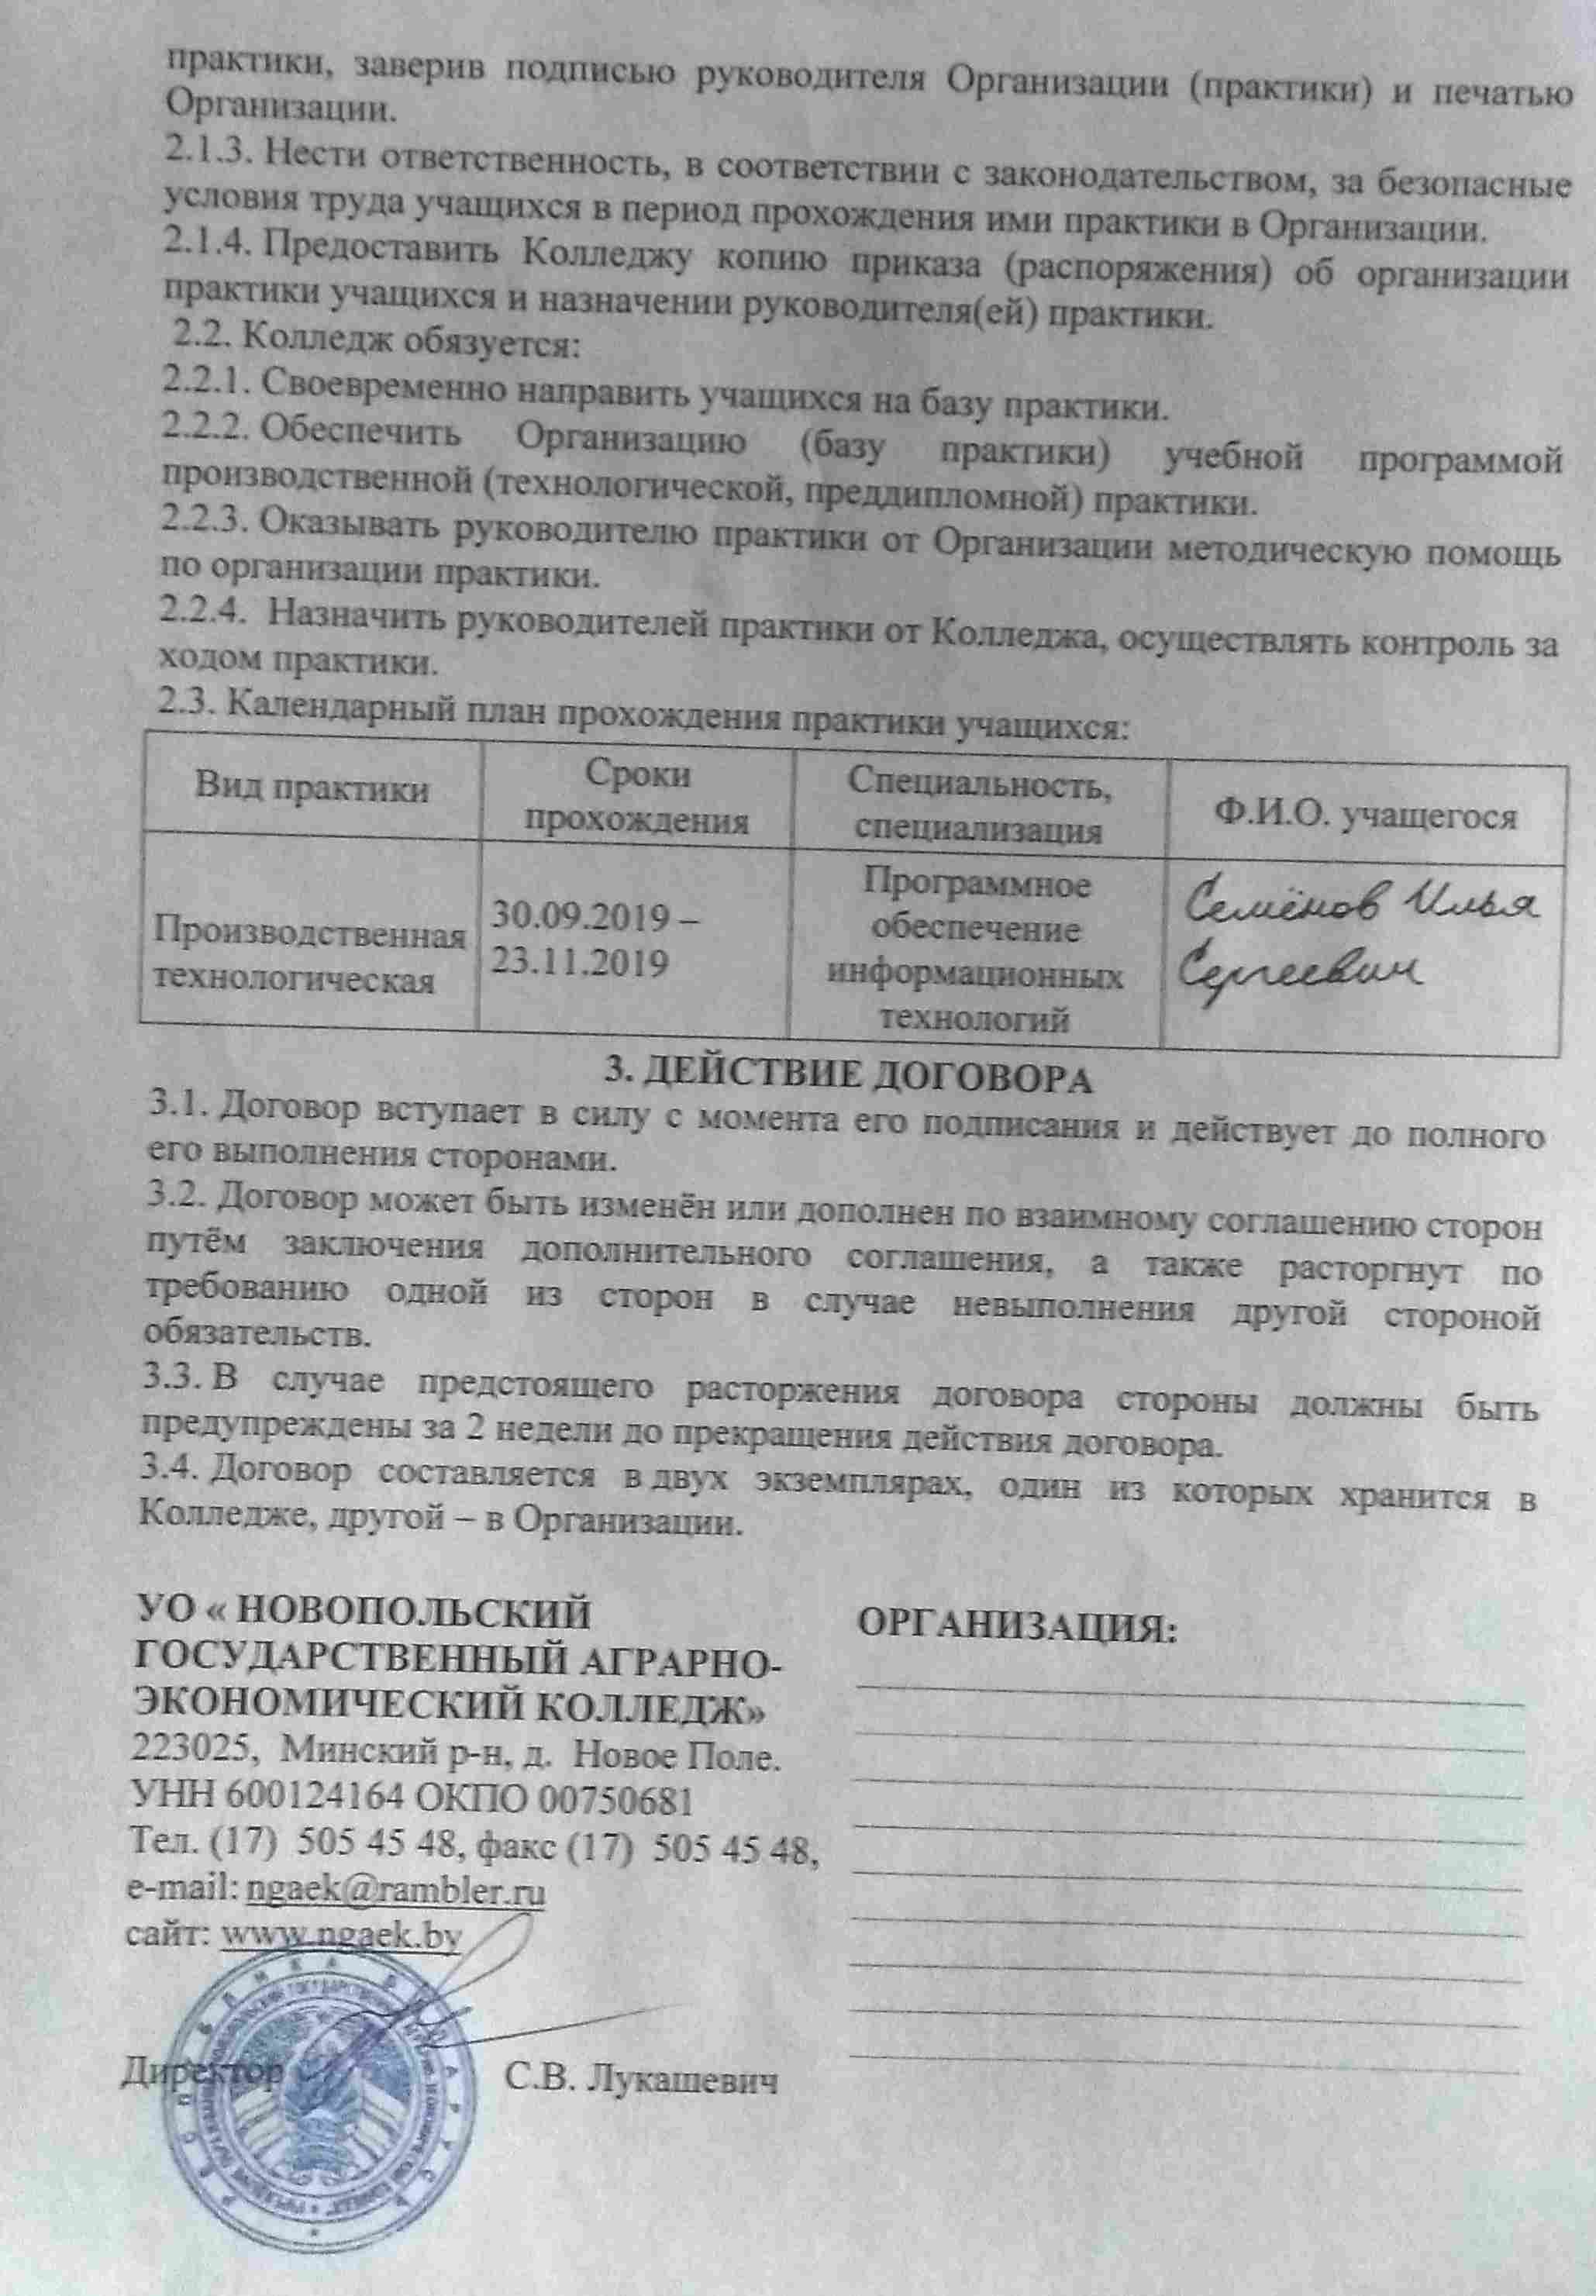 практики, заверив подписью руководителя Организации (практики) и печатью
Организации.
2.1.3. Нести ответственность, в соответствии с законодательством, за безопасные
условия труда учащихся в период прохождения ими практики в Организации.
2.1.4. Предоставить Колледжу копию приказа (распоряжения) об организации
практики учащихся и назначении руководителя(ей) практики.
2.2. Колледж обязуется:
2.2.1. Своевременно направить учащихся на базу практики.
2.2.2. Обеспечить Организацию (базу практики) учебной программой
производственной (технологической, преддипломной) практики.
2.2.3. Оказывать руководителю практики от Организации методическую помощь
по организации практики.
2.2.4. Назначить руководителей практики от Колледжа, осуществлять контроль за
ходом практики.
2.3. Календарный план прохождения практики учащихся:
Вид практики
Сроки
прохождения
Специальность,
специализация
Ф.И.О. учащегося
Производственная
технологическая
30.09.2019 –
23.11.2019
Программное
обеспечение
информационных
технологий
Семёнов Илья
Сергеевич
3. ДЕЙСТВИЕ ДОГОВОРА
3.1. Договор вступает в силу с момента его подписания и действует до полного
его выполнения сторонами.
3.2. Договор может быть изменён или дополнен по взаимному соглашению сторон
путём заключения дополнительного соглашения, а также расторгнут по
требованию одной из сторон в случае невыполнения другой стороной
обязательств.
3.3. В случае предстоящего расторжения договора стороны должны быть
предупреждены за 2 недели до прекращения действия договора.
3.4. Договор составляется в двух экземплярах, один из которых хранится в
Колледже, другой – в Организации.
УО « НОВОПОЛЬСКИЙ
ГОСУДАРСТВЕННЫЙ АГРАРНО-
ЭКОНОМИЧЕСКИЙ КОЛЛЕДЖ»
223025, Минский р-н, д. Новое Поле.
УНН 600124164 ОКПО 00750681
Тел. (17) 505 45 48, факс (17) 505 45 48,
e-mail: ngaek@rambler.ru
сайт: www.ngaek.by
Директор
С.В. Лукашевич
ОРГАНИЗАЦИЯ: